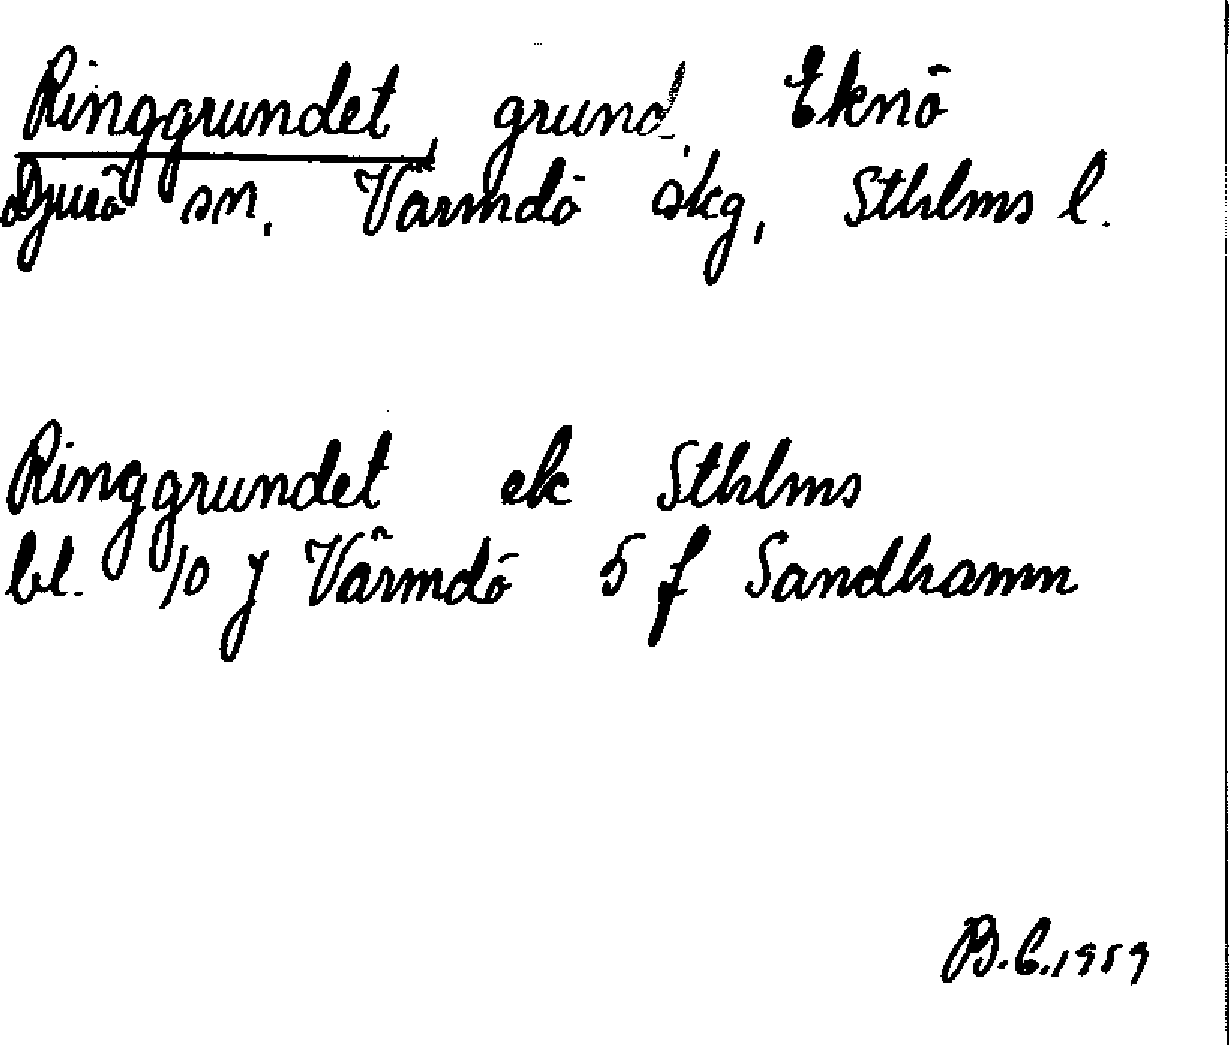 Ringgrundet, grund, Eknö
Djurö sn, Värmdö skg, Sthlms l.
Ringgrundet ek Sthlms
bl. 10 j Värmdö 5 f Sandhamn
B.C. 1959